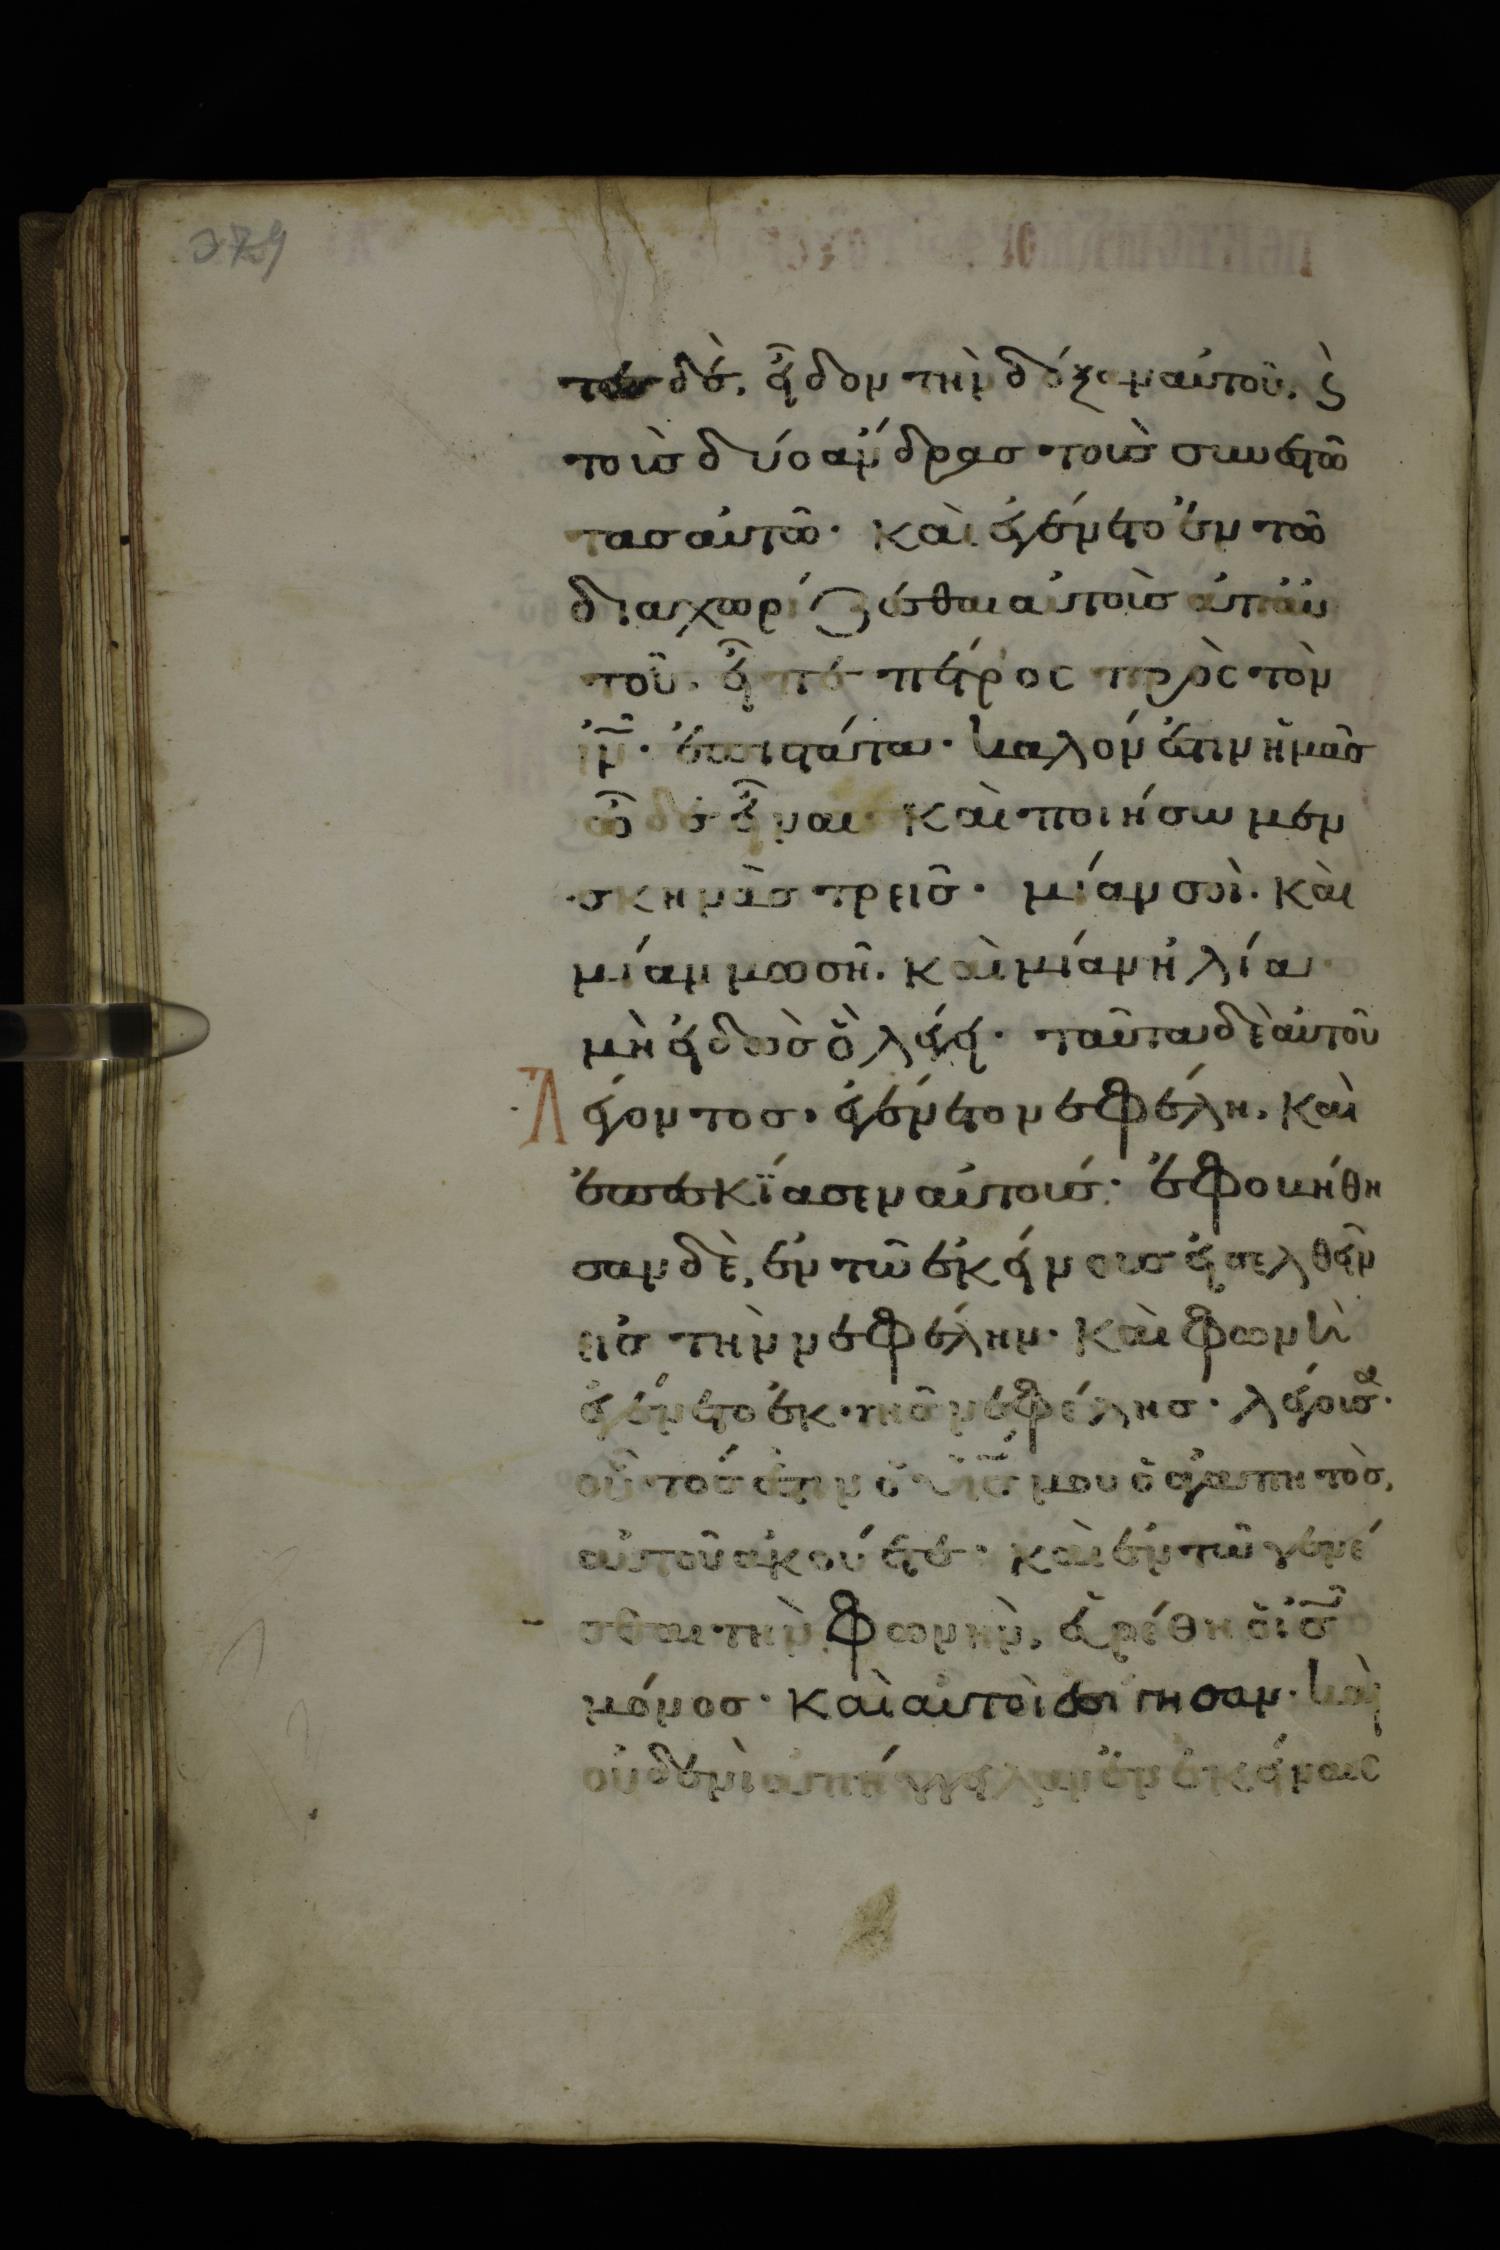 379
τες δέ, εἶδον τὴν δόξαν αὐτοῦ, ϛ̀
τοὺς δύο ἄνδρας τοὺς συνεστῶ
τας αὐτῶ· καὶ ἐγένετο ἐν τῶ
διαχωρίζεσθαι αὐτοὺς ἀπ' αὐ
τοῦ, εἶπε πέτρος πρὸς τὸν
ἰν̅· ἐπιστάτα· καλόν ἐστιν ἡμᾶς
ὧδε εἶναι· καὶ ποιήσωμεν
σκηνὰς τρεῖς· μίαν σοὶ· καὶ
μίαν μωσῆ. καὶ μίαν ἠλία·
μὴ εἰδὼς ὃ λέγει· ταῦτα δὲ αὐτοῦ
λέγοντος, ἐγένετο νεφέλη, καὶ
ἐπεσκΐασεν αὐτούς· ἐφοβήθη
σαν δὲ, ἐν τῶ ἐκείνους εἰσελθεῖν
εἰς τὴν νεφέλην· καὶ φωνὴ
ἐγένετο ἐκ τῆς νεφέλης· λέγουσα·
οὗτός ἐστιν ὁ υἱς̅ μου ὁ ἀγαπητὸς,
αὐτοῦ ἀκούετε· καὶ ἐν τῶ γενέ
σθαι τὴν φωνὴν, εὑρέθη ὁ ἰς̅
μόνος· καὶ αὐτοὶ ἐσίγησαν· καὶ
οὐδενὶ ἀπήγγειλαν ἐν ἐκείναις